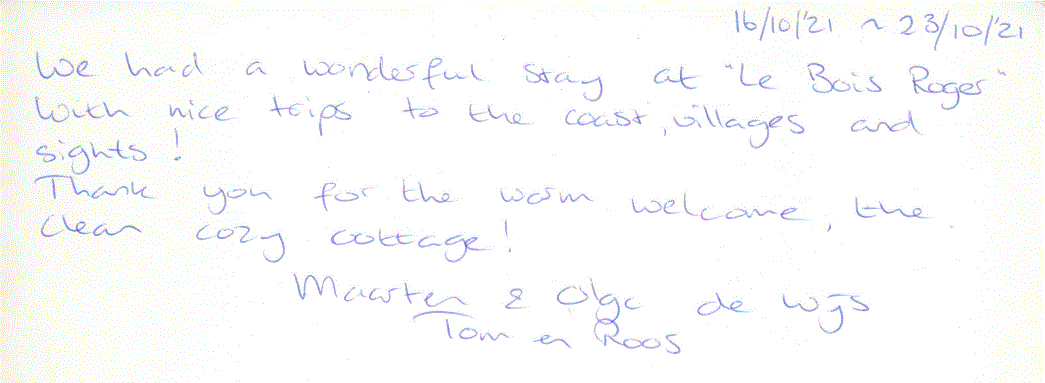 16/10/'21 ~ 23/10/'21
We had a wonderful stay at "Le Bois Roger"
with nice trips to the coast, villages and
sights!
Thank you for the warm welcome, the
clean cozy cottage!
Maarten & Olga de Wijs
Tom en Roos